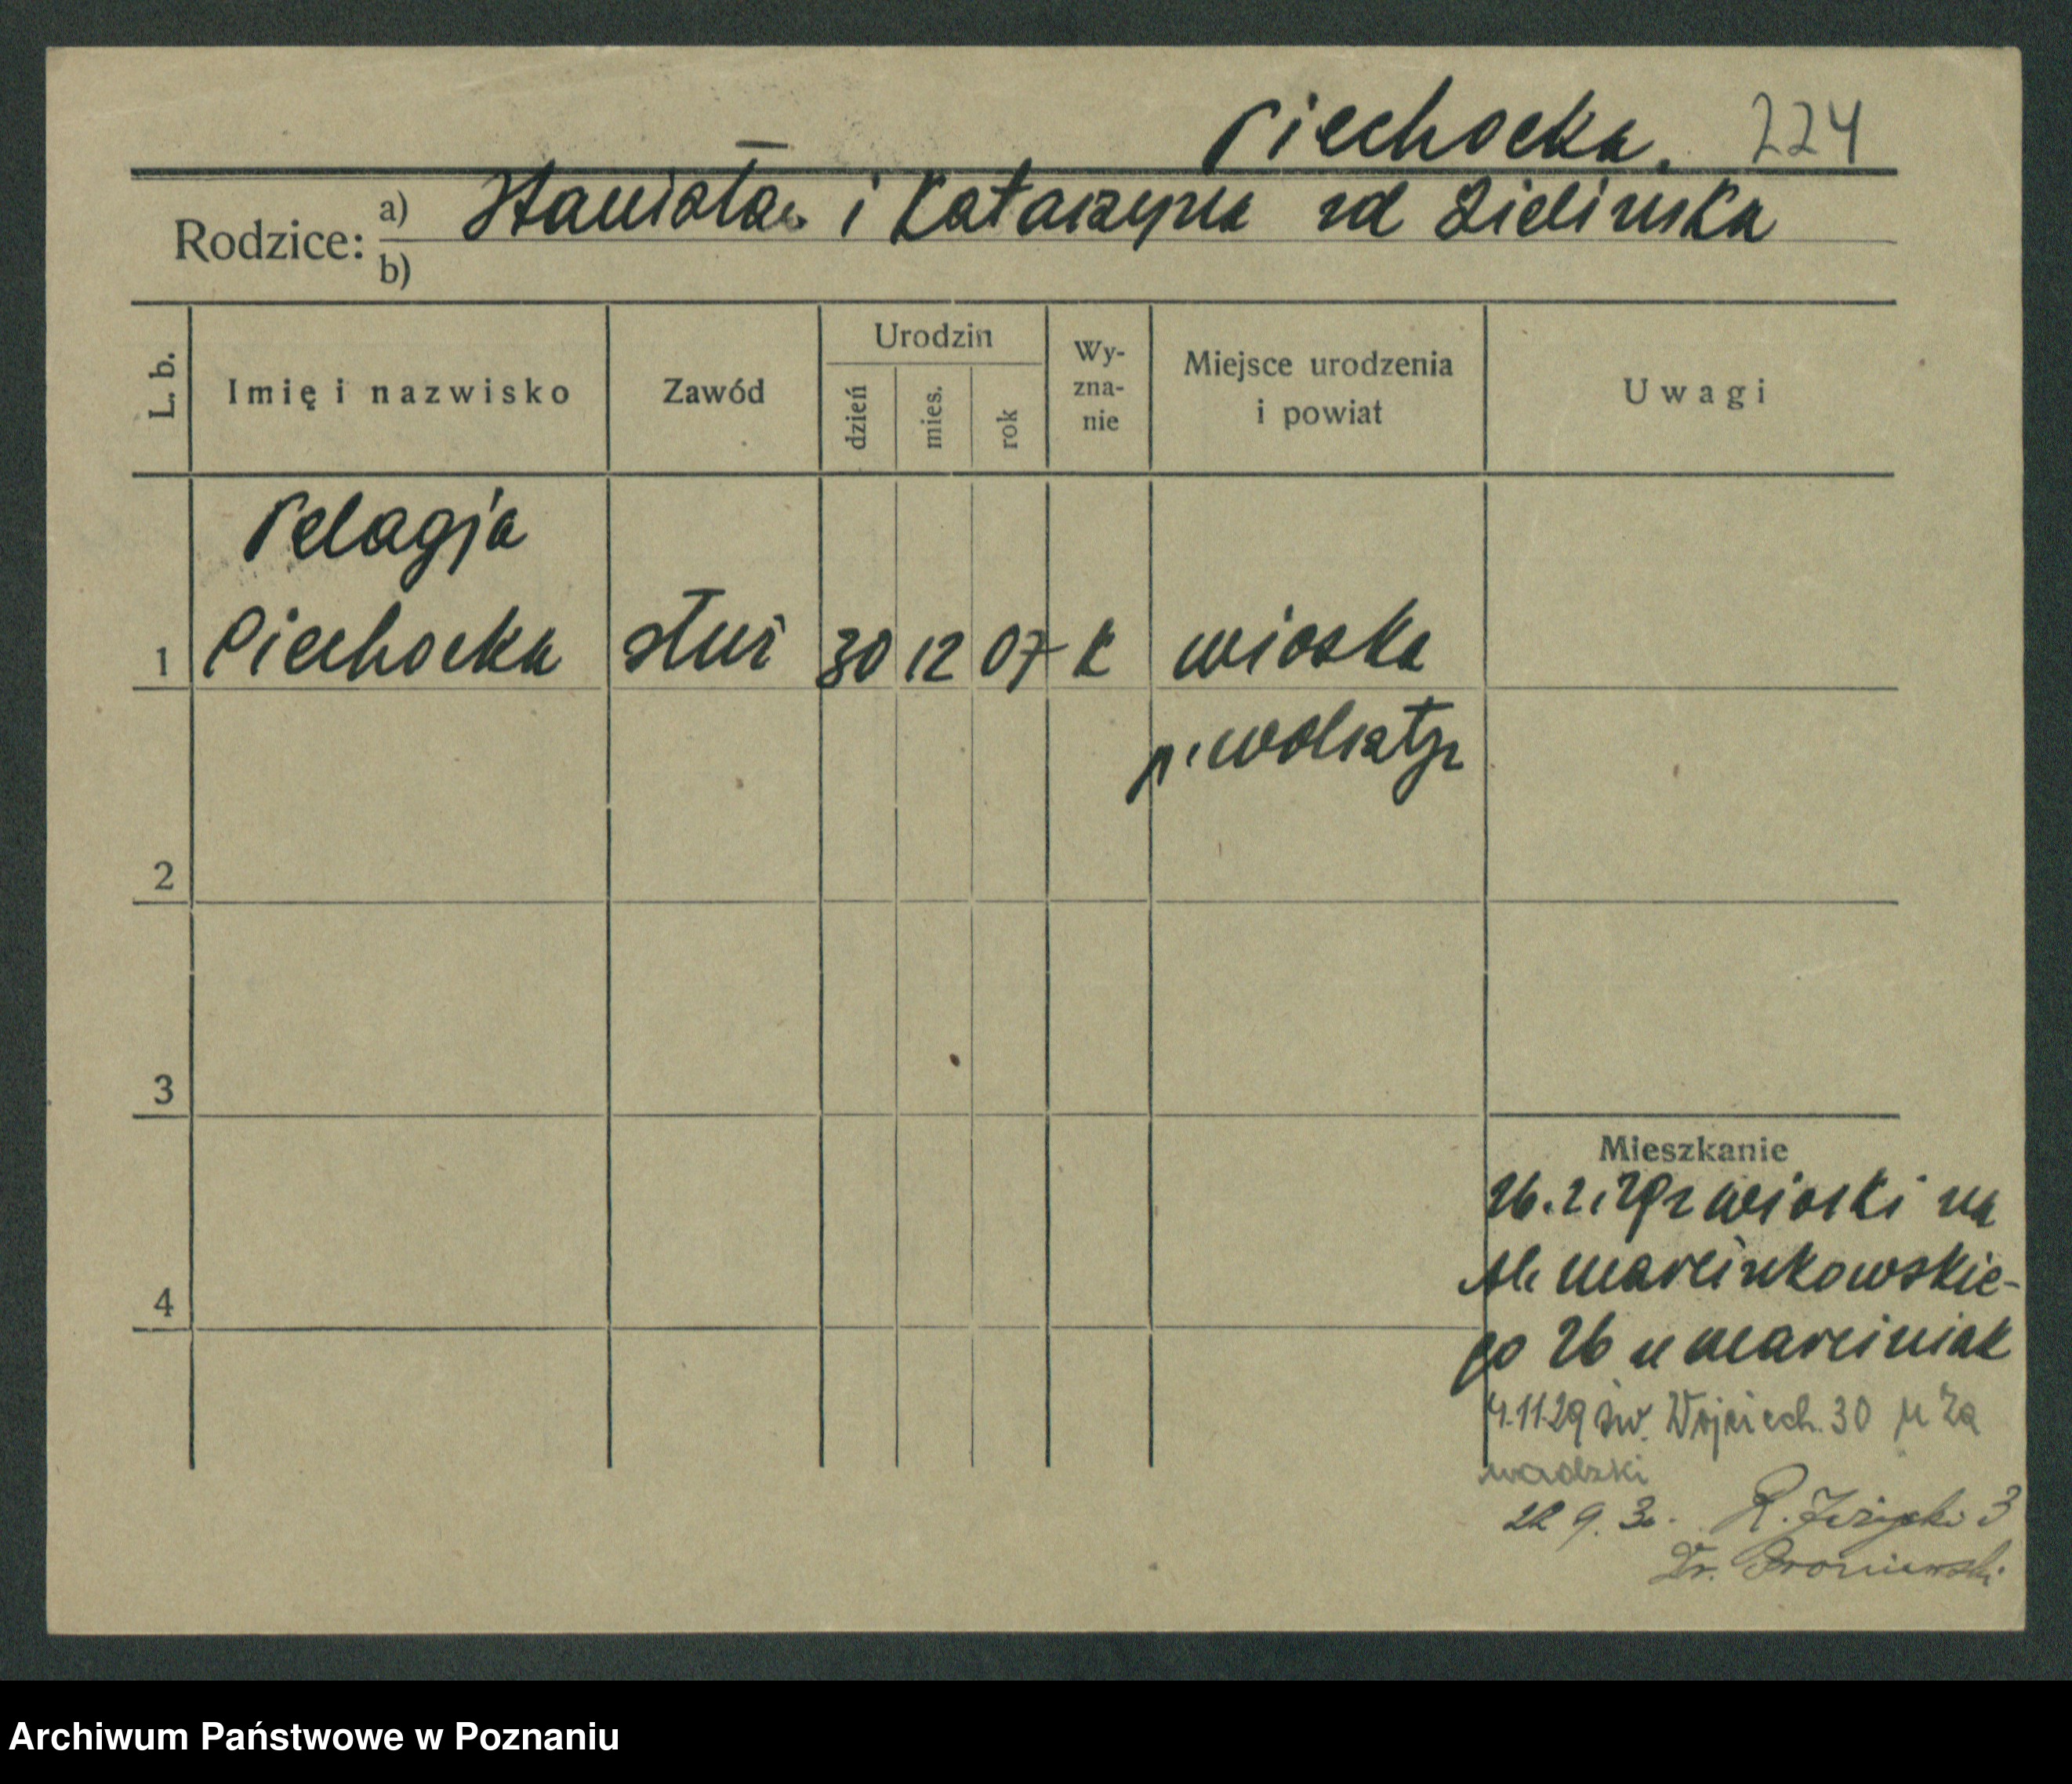 Piechocka. 224
Rodzice: a) Stanisław i Katarzyna zd Zielińska
b)
L. b. Imię i nazwisko Zawód Urodzin dzień mies. rok Wy-zna-nie Miejsce urodzenia i powiat Uwagi
Pelagja
1 Piechocka służ 30 12 07 k wioska
p. wolsztyn
2
3
Mieszkanie
26.2.29 z wioski na
Al. marcinkowskie-
4
go 26 u marciniak
4.11.29 św. Wojciech. 30 u Za
wadzki
22 9. 30. R. 3
Dr. Broniewski
Archiwum Państwowe w Poznaniu